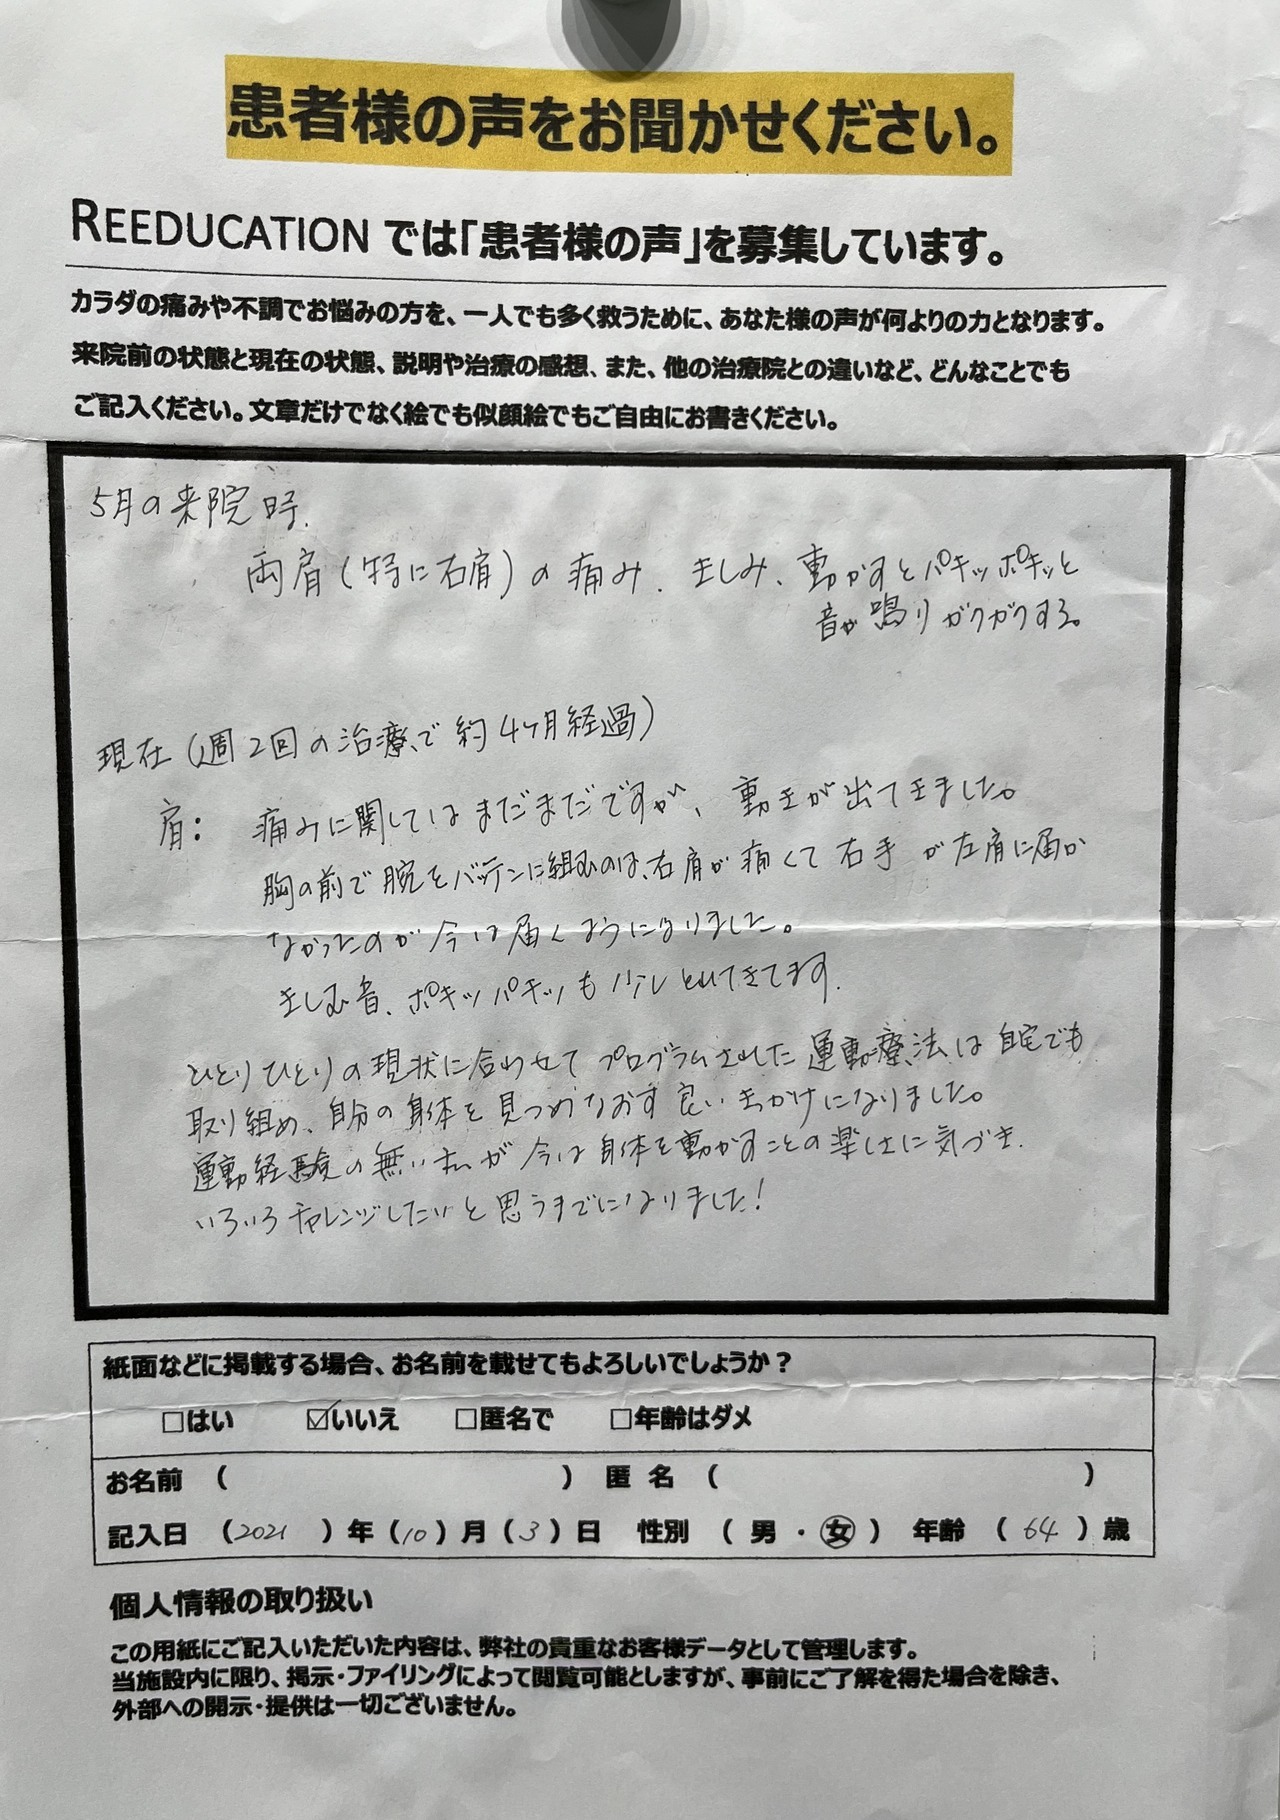 患者様の声をお聞かせください。
REEDUCATION では｢患者様の声｣を募集しています。
カラダの痛みや不調でお悩みの方を、一人でも多く救うために、あなた様の声が何よりの力となります。
来院前の状態と現在の状態、説明や治療の感想、また、他の治療院との違いなど、どんなことでも
ご記入ください。文章だけでなく絵でも似顔絵でもご自由にお書きください。
5月の来院時.
両肩(特に右肩)の痛み. きしみ、動かすとパキッポキッと
音が鳴りガクガクする。
現在(週2回の治療で約4ヶ月経過)
肩: 痛みに関してはまだまだですが、動きが出てきました。
胸の前で腕をバッテンに組むのは、右肩が痛くて右手が左肩に届か
なかったのが今は届くようになりました。
きしむ音、ポキッパキッも少しとれてきてます.
ひとりひとりの現状に合わせてプログラムされた運動療法は自宅でも
取り組め、自分の身体を見つめなおす良いきっかけになりました。
運動経験の無い私が今は身体を動かすことの楽しさに気づき.
いろいろチャレンジしたいと思うまでになりました!
紙面などに掲載する場合、お名前を載せてもよろしいでしょうか?
□はい ☑いいえ □匿名で □年齢はダメ
お名前 ( ) 匿 名 ( )
記入日 (2021 )年(10)月(3)日 性別 ( 男 ・ 女 ) 年齢 ( 64 )歳
個人情報の取り扱い
この用紙にご記入いただいた内容は、弊社の貴重なお客様データとして管理します。
当施設内に限り、掲示・ファイリングによって閲覧可能としますが、事前にご了解を得た場合を除き、
外部への開示・提供は一切ございません。